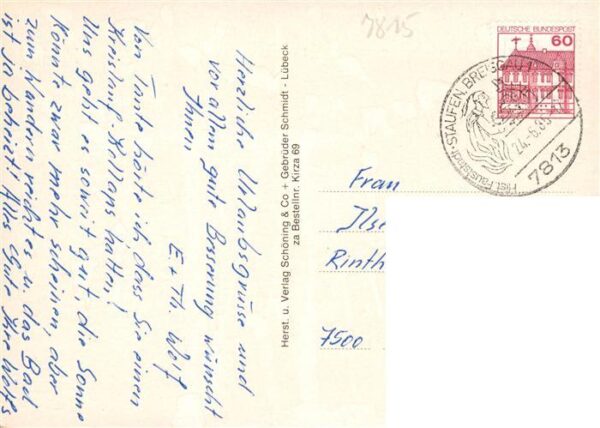 7815
DEUTSCHE BUNDESPOST
60
STAUFEN, BREISGAU 1
24.-6.85
7813
Hist. Fauststadt
Herzliche Urlaubsgrüsse und
vor allem gute Besserung wünscht
Ihnen
E + Th. Wolf
Von Tante hörte ich, dass Sie einen
Kreislauf Kollaps hatten!
Uns geht es soweit gut, die Sonne
könnte zwar mehr scheinen, aber
zum Wandern reicht es u. das Bad
ist ja beheizt! Alles Gute Ihre Wolfs
Herst. u. Verlag Schöning & Co + Gebrüder Schmidt - Lübeck
za Bestellnr. Kirza 69
Frau
Ilse
Rinth
7500